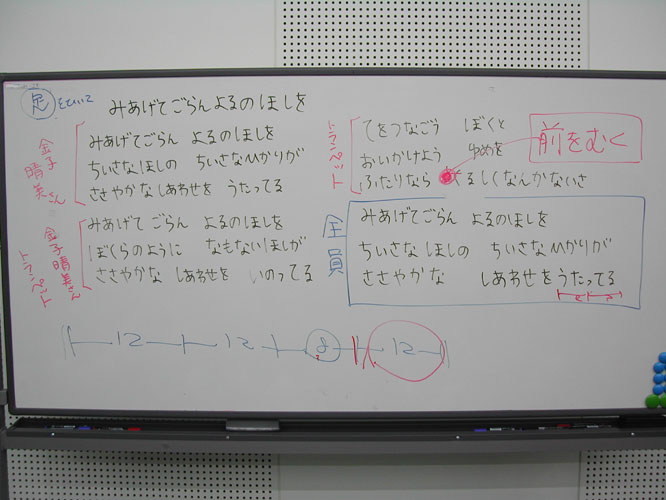 足
みあげてごらん よるのほしを
金子晴美さん
みあげてごらん よるのほしを
ちいさなほしの ちいさなひかりが
ささやかなしあわせを うたってる
金子晴美さん
トランペット
みあげてごらん よるのほしを
ぼくらのように なもないほしが
ささやかな しあわせを いのってる
トランペット
てをつなごう ぼくと
おいかけよう ゆめを
ふたりなら くるしくなんかないさ
前をむく
全員
みあげてごらん よるのほしを
ちいさなほしの ちいさなひかりが
ささやかな しあわせをうたってる
12 12 8 12